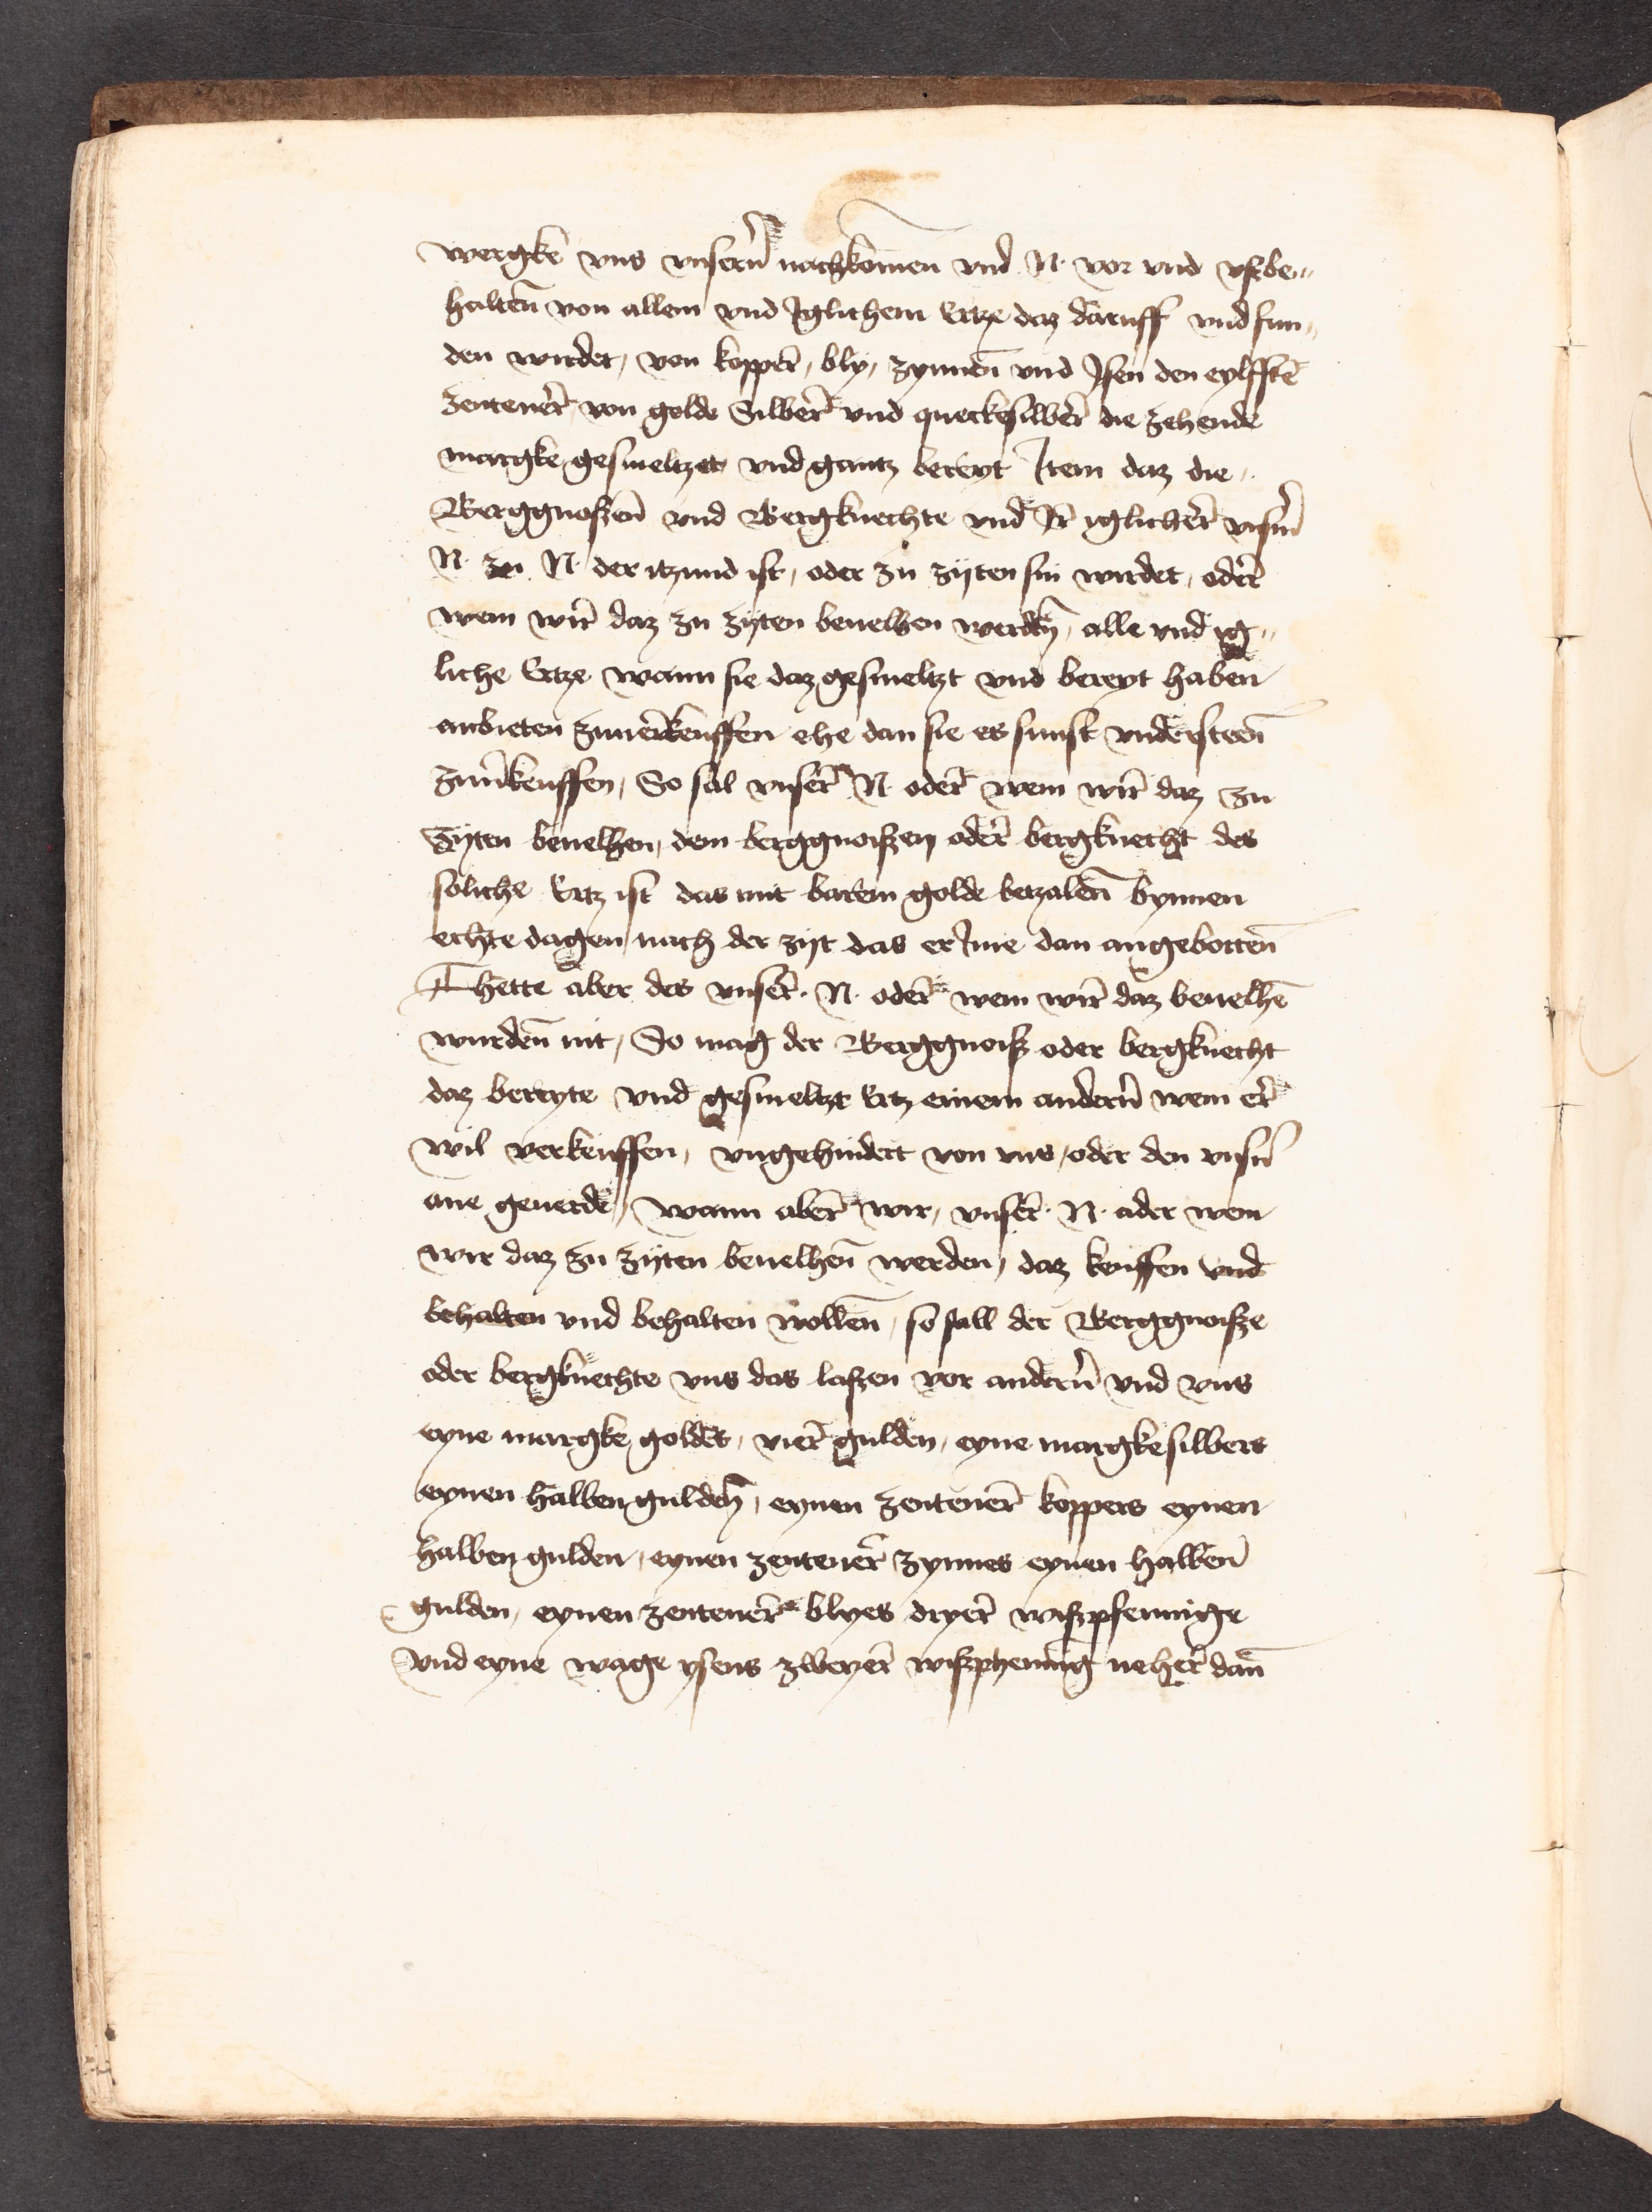 wergke vns vnsern̄ nachkōmen vnd N· vor vnd vßbe„
halten̄ von allem vnd Jglichem Ertze daz daruff vnd fun„
den wirdet, von kopper̄, bly, zynnen̄ vnd Jsen den eylfftē
zentener̄, von golde Silber̄ vnd quecksilber̄ die zehende
margke gesmeltzet vnd gantz bereyt Jtem daz die„
Berggnoßen̄ vnd Bergknechte vnd Jr̄ yglicher̄ vnsm̄
N· zu N· der itzund ist, oder zu zijten sin wirdet, oder̄
wem wir̄ daz zu zijten beuelhen werden̄, alle vnd ig„
liche Ertze wann sie daz gesmeltzt vnd bereyt haben
anbieten zuuerkeuffen ehe dan sie es sunst vndersteen̄
zuu̓keuffen, So sal vnser̄ N· oder̄ wem wir̄ daz zu
Zijten beuelhen, dem berggnoißen oder̄ bergknecht des
soliche Ertz ist das mit barem golde betzalen̄ bynnen
echte dagen nach der zijt das er Jme dan angebotten̄
Thette aber des vnser̄· N· oder̄ wem wir̄ daz beuelhē
wurden̄ nit, So mag der Berggnoiß oder bergknecht
daz bereyte vnd gesmeltzt Ertz einem andern̄ wem er̄
wil verkeuffen, vngehindert von vns, oder den vnsn̄
ane geuerde, wann aber̄ wir, vnser̄· N· ader wem
wir daz zu zijten beuelhen̄ werden, daz keuffen vnd
behalten vnd behalten wollen̄, so sall der Berggnoiße
oder bergknechte vns das laßen vor andern̄ vnd vns
eyne margke goldes, vier̄ gulden, eyne margke silbers
eynen halben gulden̄, eynen zentener̄ koppers eynen
halben gulden, eynen zentener̄ zynnes eynen halben̄
gulden, eynen zentener̄ blyes dryer̄ wißpfennige
vnd eyne wage ysens zweyer̄ wißphennīg neher̄ dan̄